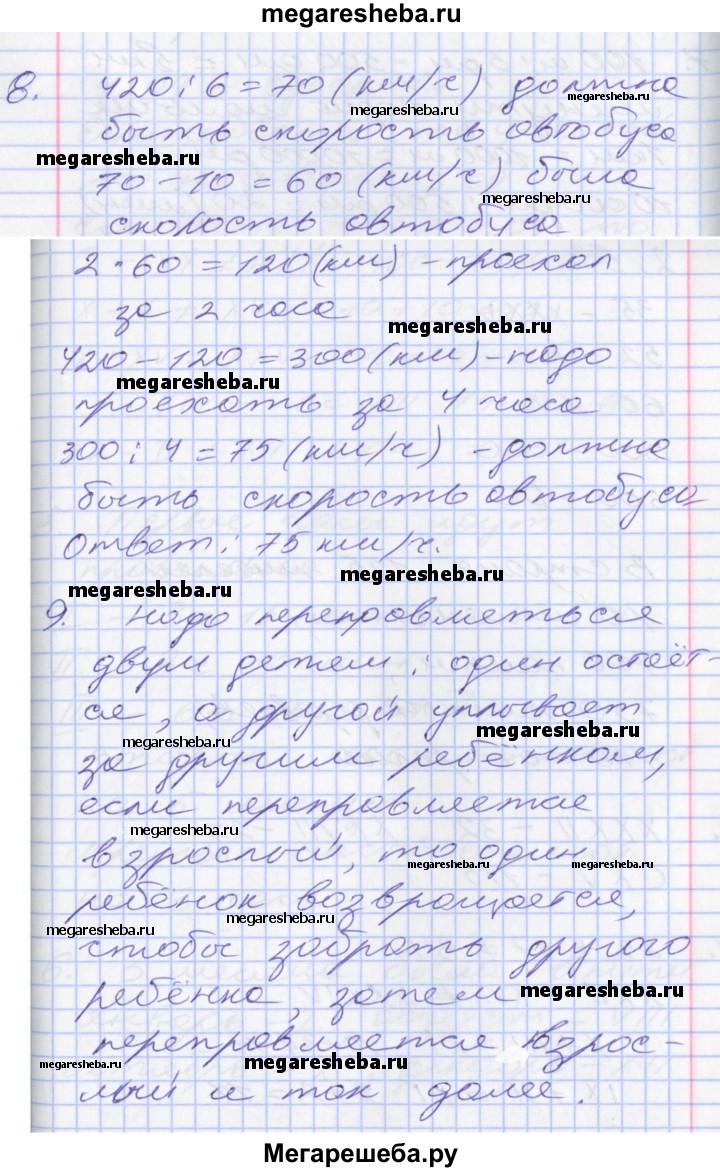 megaresheba.ru
8. 420 : 6 = 70 (км/ч) должна
megaresheba.ru
megaresheba.ru
быть скорость автобуса
megaresheba.ru
70 - 10 = 60 (км/ч) была
megaresheba.ru
скорость автобуса
2 · 60 = 120 (км) - проехал
за 2 часа
megaresheba.ru
420 - 120 = 300 (км) - надо
megaresheba.ru
проехать за 4 часа
300 : 4 = 75 (км/ч) - должна
быть скорость автобуса
Ответ : 75 км/ч.
megaresheba.ru
megaresheba.ru
9. Надо переправляться
двум детям : один остаёт-
ся, а другой уплывает
megaresheba.ru
megaresheba.ru
за другим ребёнком,
если переправляется
megaresheba.ru
взрослый, то один
megaresheba.ru
megaresheba.ru
ребёнок возвращается,
megaresheba.ru
чтобы забрать другого
megaresheba.ru
ребёнка, затем
megaresheba.ru
переправляется взрос-
megaresheba.ru
megaresheba.ru
лый и так далее.
megaresheba.ru
Мегарешеба.ру